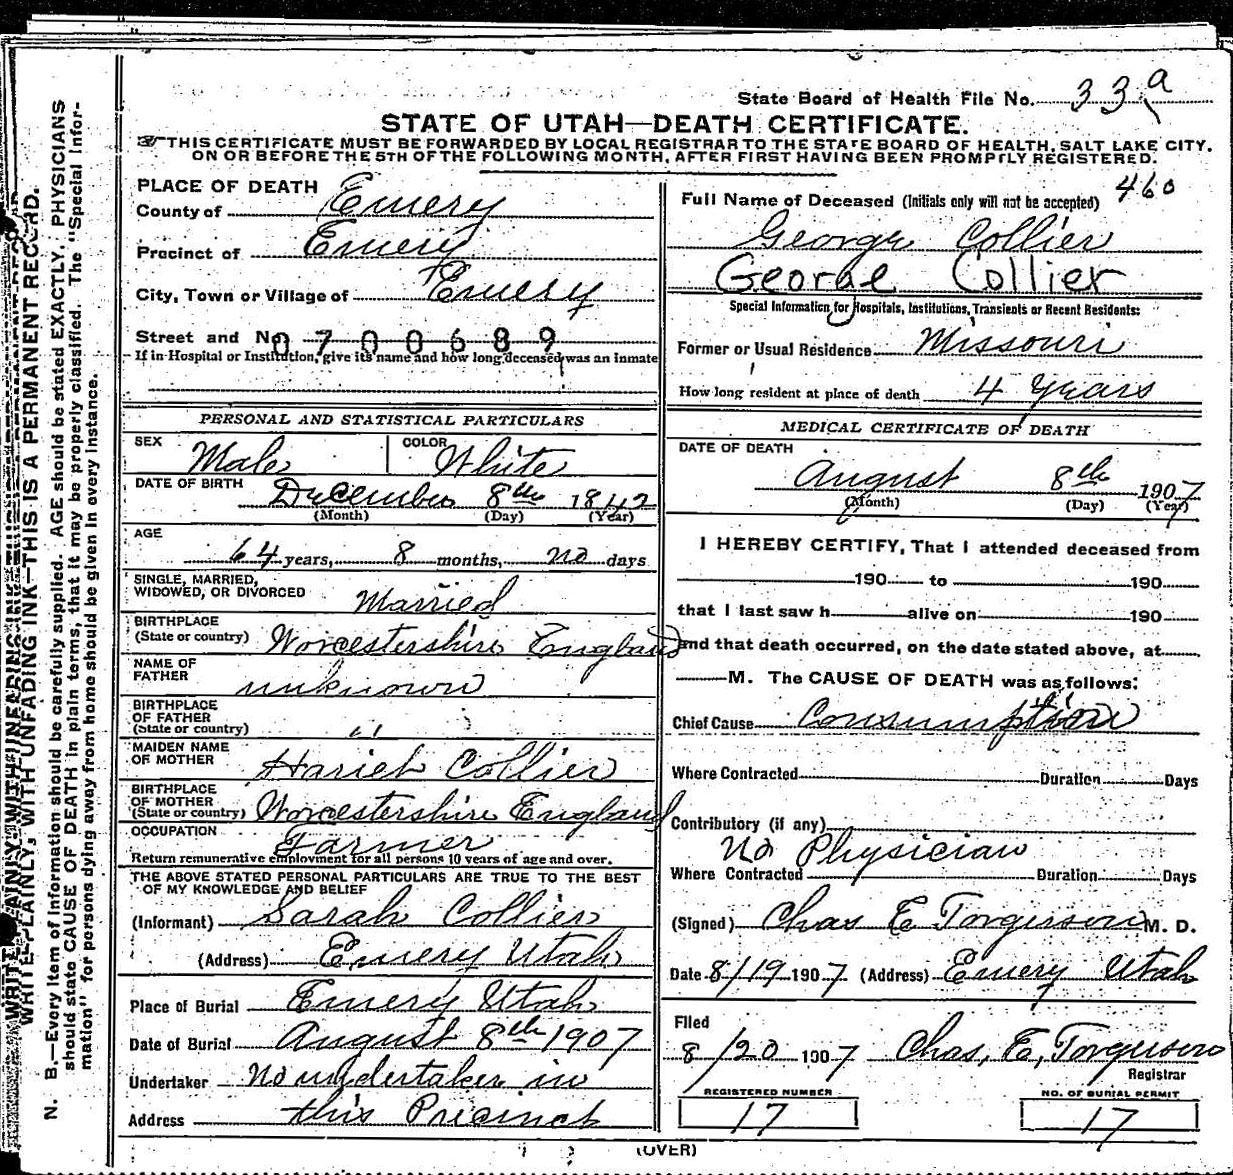 State Board of Health File No. 33a
STATE OF UTAH—DEATH CERTIFICATE.
THIS CERTIFICATE MUST BE FORWARDED BY LOCAL REGISTRAR TO THE STATE BOARD OF HEALTH, SALT LAKE CITY,
ON OR BEFORE THE 5TH OF THE FOLLOWING MONTH, AFTER FIRST HAVING BEEN PROMPTLY REGISTERED.
WRITE PLAINLY, WITH UNFADING INK—THIS IS A PERMANENT RECORD.
N. B.—Every item of information should be carefully supplied. AGE should be stated EXACTLY. PHYSICIANS
should state CAUSE OF DEATH in plain terms, that it may be properly classified. The "Special Infor-
mation" for persons dying away from home should be given in every instance.
PLACE OF DEATH
County of Emery
Precinct of Emery
City, Town or Village of Emery
Street and No 0700689
If in Hospital or Institution, give its name and how long deceased was an inmate
PERSONAL AND STATISTICAL PARTICULARS
SEX Male COLOR White
DATE OF BIRTH December 8th 1842
(Month) (Day) (Year)
AGE
64 years, 8 months, no days
SINGLE, MARRIED,
WIDOWED, OR DIVORCED Married
BIRTHPLACE
(State or country) Worcestershire England
NAME OF
FATHER unknown
BIRTHPLACE
OF FATHER
(State or country) " "
MAIDEN NAME
OF MOTHER Hariet Collier
BIRTHPLACE
OF MOTHER
(State or country) Worcestershire England
OCCUPATION Farmer
Return remunerative employment for all persons 10 years of age and over.
THE ABOVE STATED PERSONAL PARTICULARS ARE TRUE TO THE BEST
OF MY KNOWLEDGE AND BELIEF
(Informant) Sarah Collier
(Address) Emery Utah
Place of Burial Emery Utah
Date of Burial August 8th 1907
Undertaker No undertaker in
Address this Precinct
460
Full Name of Deceased (Initials only will not be accepted)
George Collier
George Collier
Special Information for Hospitals, Institutions, Transients or Recent Residents:
Former or Usual Residence Missouri
How long resident at place of death 4 years
MEDICAL CERTIFICATE OF DEATH
DATE OF DEATH
August 8th 1907
(Month) (Day) (Year)
I HEREBY CERTIFY, That I attended deceased from
190 to 190
that I last saw h alive on 190
and that death occurred, on the date stated above, at
M. The CAUSE OF DEATH was as follows:
Chief Cause Consumption
Where Contracted Duration Days
Contributory (if any)
No Physician
Where Contracted Duration Days
(Signed) Chas E Torgerson M. D.
Date 8/19 1907 (Address) Emery Utah
Filed
8/20 1907 Chas, E, Torgerson
Registrar
REGISTERED NUMBER NO. OF BURIAL PERMIT
17 17
(OVER)